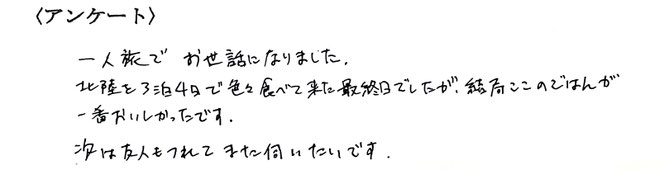 〈アンケート〉
一人旅で お世話になりました.
北陸を3泊4日で色々食べて来た最終日でしたが、結局ここのごはんが
一番おいしかったです.
次は友人もつれて また伺いたいです.